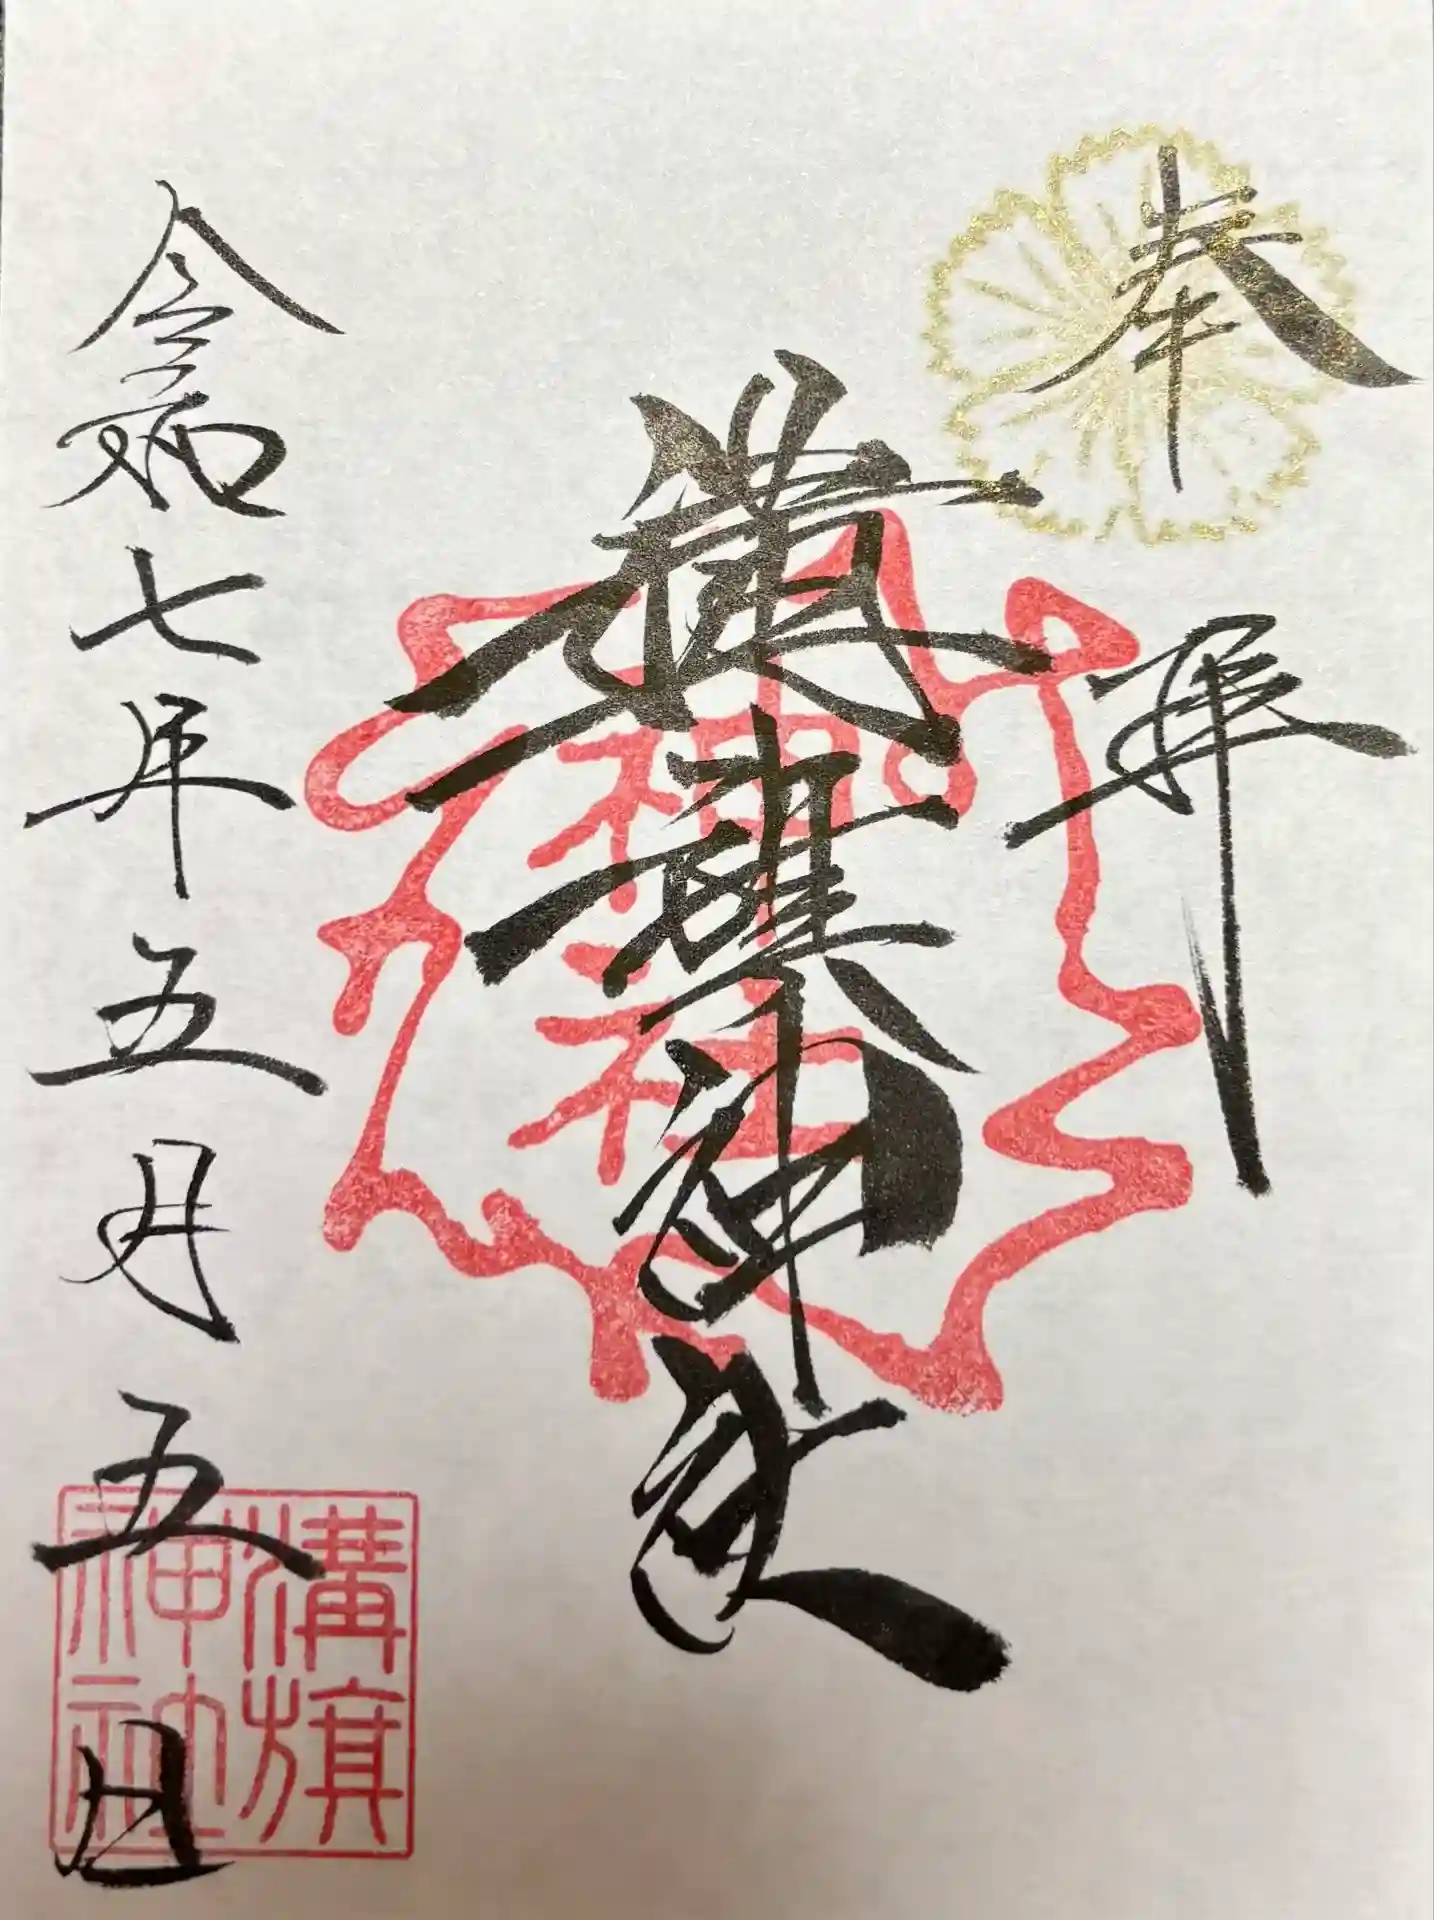 奉拝
溝旗神社
神社
令和七年五月五日
溝旗
神社